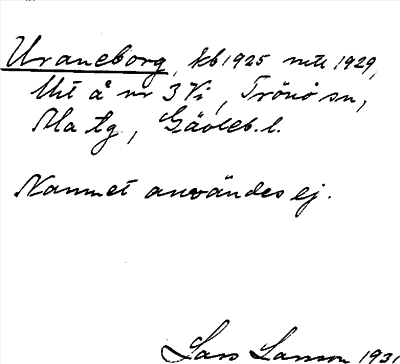 Uraneborg, kb 1925 mtl 1929,
Ut å nr 3 Vi, Trönö sn,
Ala tg, Gävleb. l.
Namnet användes ej.
Lars Larsson 1931